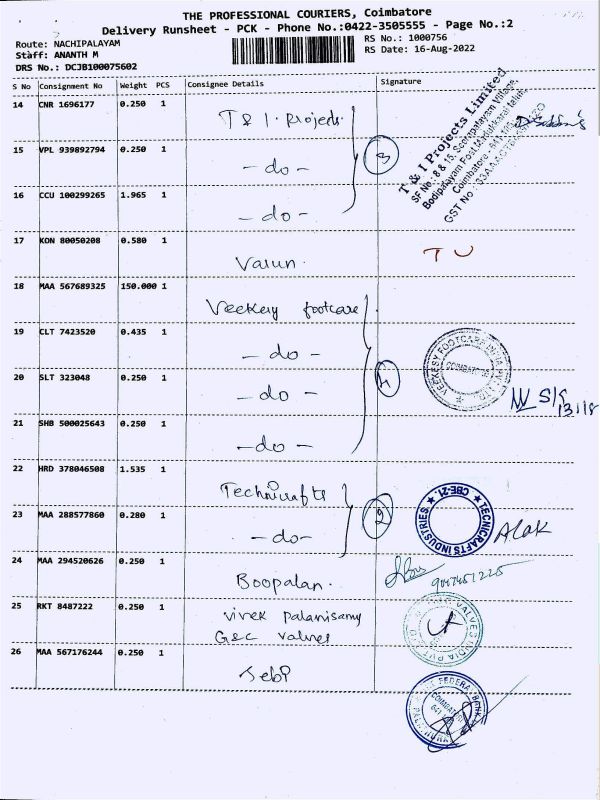 THE PROFESSIONAL COURIERS, Coimbatore
Delivery Runsheet - PCK - Phone No.:0422-3505555 - Page No.:2
Route: NACHIPALAYAM
Staff: ANANTH M
DRS No.: DCJB100075602
RS No.: 1000756
RS Date: 16-Aug-2022
S No Consignment No Weight PCS Consignee Details Signature
14 CNR 1696177 0.250 1 T & I. Projects.
T & I Projects Limited
SF No.: 8 & 15, Seerapalayam Village,
Bodipalayam Post, Madukkarai taluk,
Coimbatore - 641
GST No : 33AAACT
15 VPL 939892794 0.250 1 - do - 3
16 CCU 100299265 1.965 1 - do -
17 KON 80050208 0.580 1 Varun. TU
18 MAA 567689325 150.000 1 Veekery footcare
19 CLT 7423520 0.435 1 - do -
VEEKESY FOOTCARE INDIA PVT. LTD.
COIMBATORE
20 SLT 323048 0.250 1 - do - 4
21 SHB 500025643 0.250 1 - do -
22 HRD 378046508 1.535 1 Technicrafts
23 MAA 288577860 0.280 1 - do - 2
TECNICRAFTS INDUSTRIES. CBE-21.
Alak
24 MAA 294520626 0.250 1 Boopalan. 9047451225
25 RKT 8487222 0.250 1 vivek palanisamy
G&C valves
VALVES INDIA PVT
26 MAA 567176244 0.250 1 Jebi
FEDERAL BANK
COIMBATORE
641